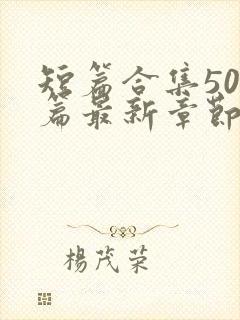 短篇合集50
篇最新章節
楊茂荣